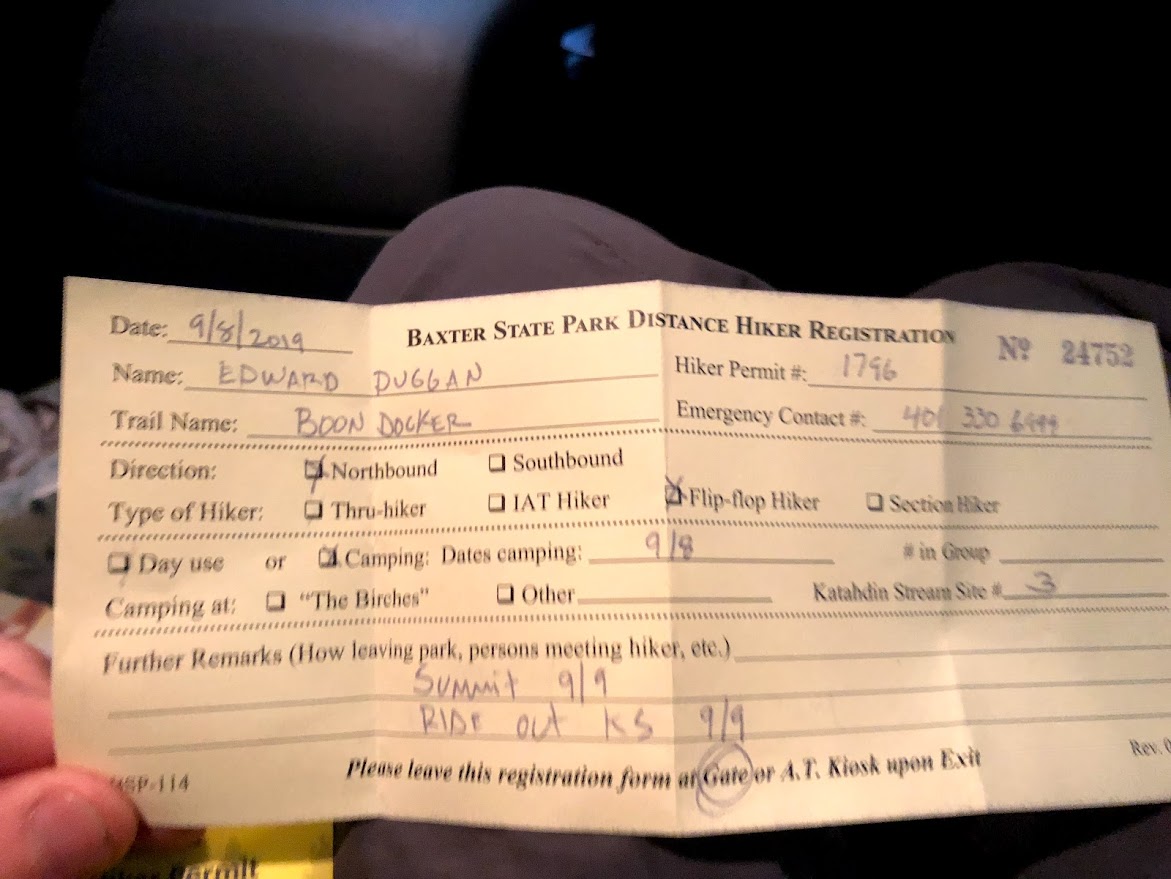 Date: 9/8/2019 BAXTER STATE PARK DISTANCE HIKER REGISTRATION Nº 24752
Name: EDWARD DUGGAN Hiker Permit #: 1796
Trail Name: BOON DOCKER Emergency Contact #: 401 330 6999
Direction: Northbound Southbound
Type of Hiker: Thru-hiker IAT Hiker Flip-flop Hiker Section Hiker
Day use or Camping: Dates camping: 9/8 # in Group
Camping at: "The Birches" Other Katahdin Stream Site # 3
Further Remarks (How leaving park, persons meeting hiker, etc.)
SUMMIT 9/9
RIDE OUT KS 9/9
Please leave this registration form at Gate or A.T. Kiosk upon Exit
Rev.
BSP-114
Permit